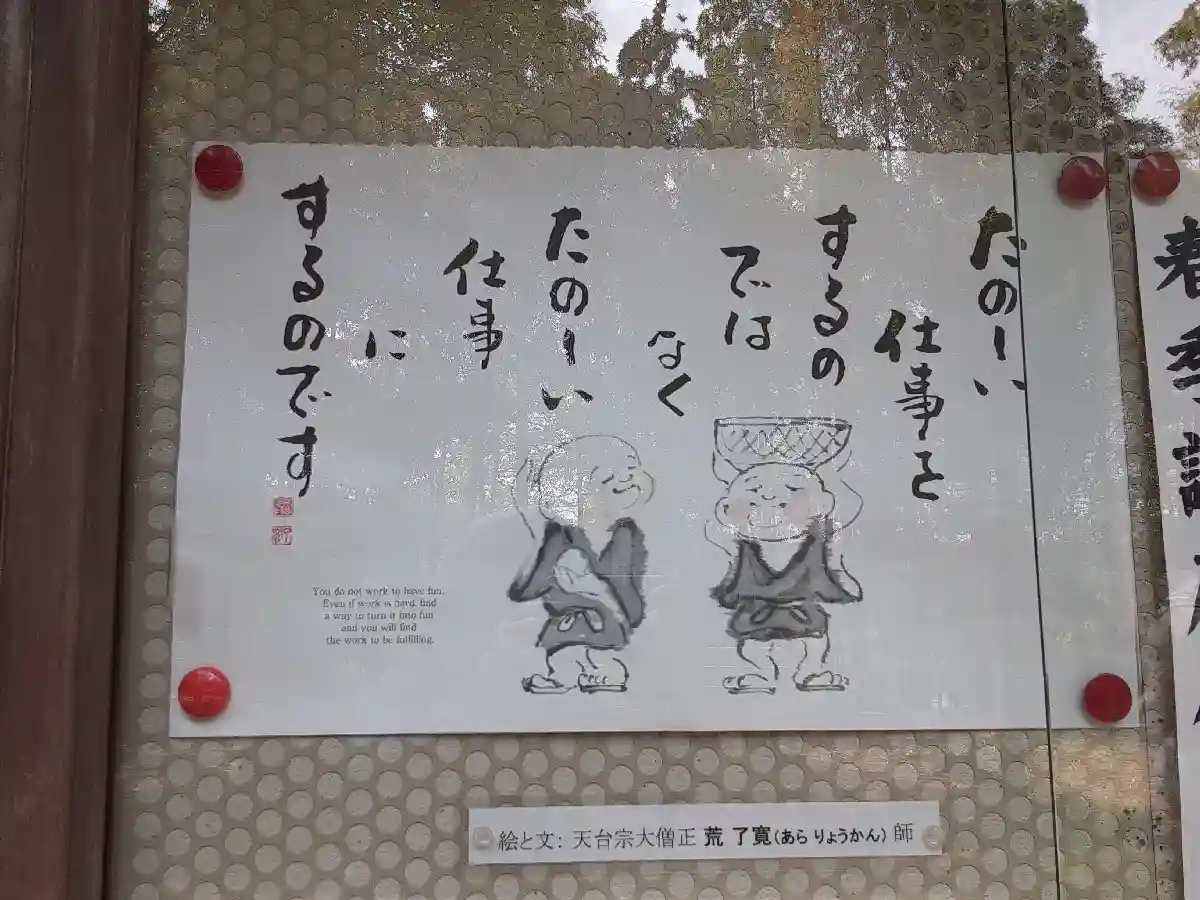 たのーい
仕事を
するの
では
なく
たのーい
仕事
に
するのです
You do not work to have fun.
Even if work is hard, find
a way to turn it into fun
and you will find
the work to be fulfilling.
絵と文: 天台宗大僧正 荒 了寛(あら りょうかん) 師
春季